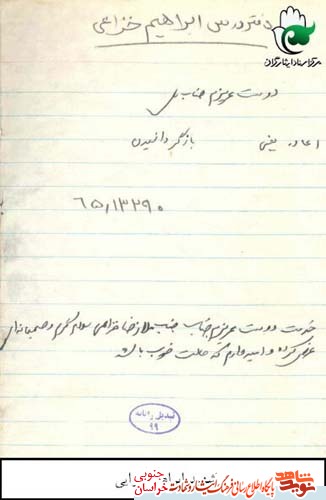 دفتر درس ابراهیم خزاعی
مرکز اسناد ایثارگران
دوست عزیزم جناب
اعاده یعنی بازگردانیدن
۶۵٫۱۳۲۹۰
خدمت دوست عزیزم جناب سلام گرم و صمیمانه‌ای
عرض کرده و امیدوارم که حالت خوب باشد
تبدیل رایانه
۹۹
شهید ابراهیم
نوید شاهد
پایگاه اطلاع رسانی فرهنگ ایثار و شهادت
خراسان جنوبی